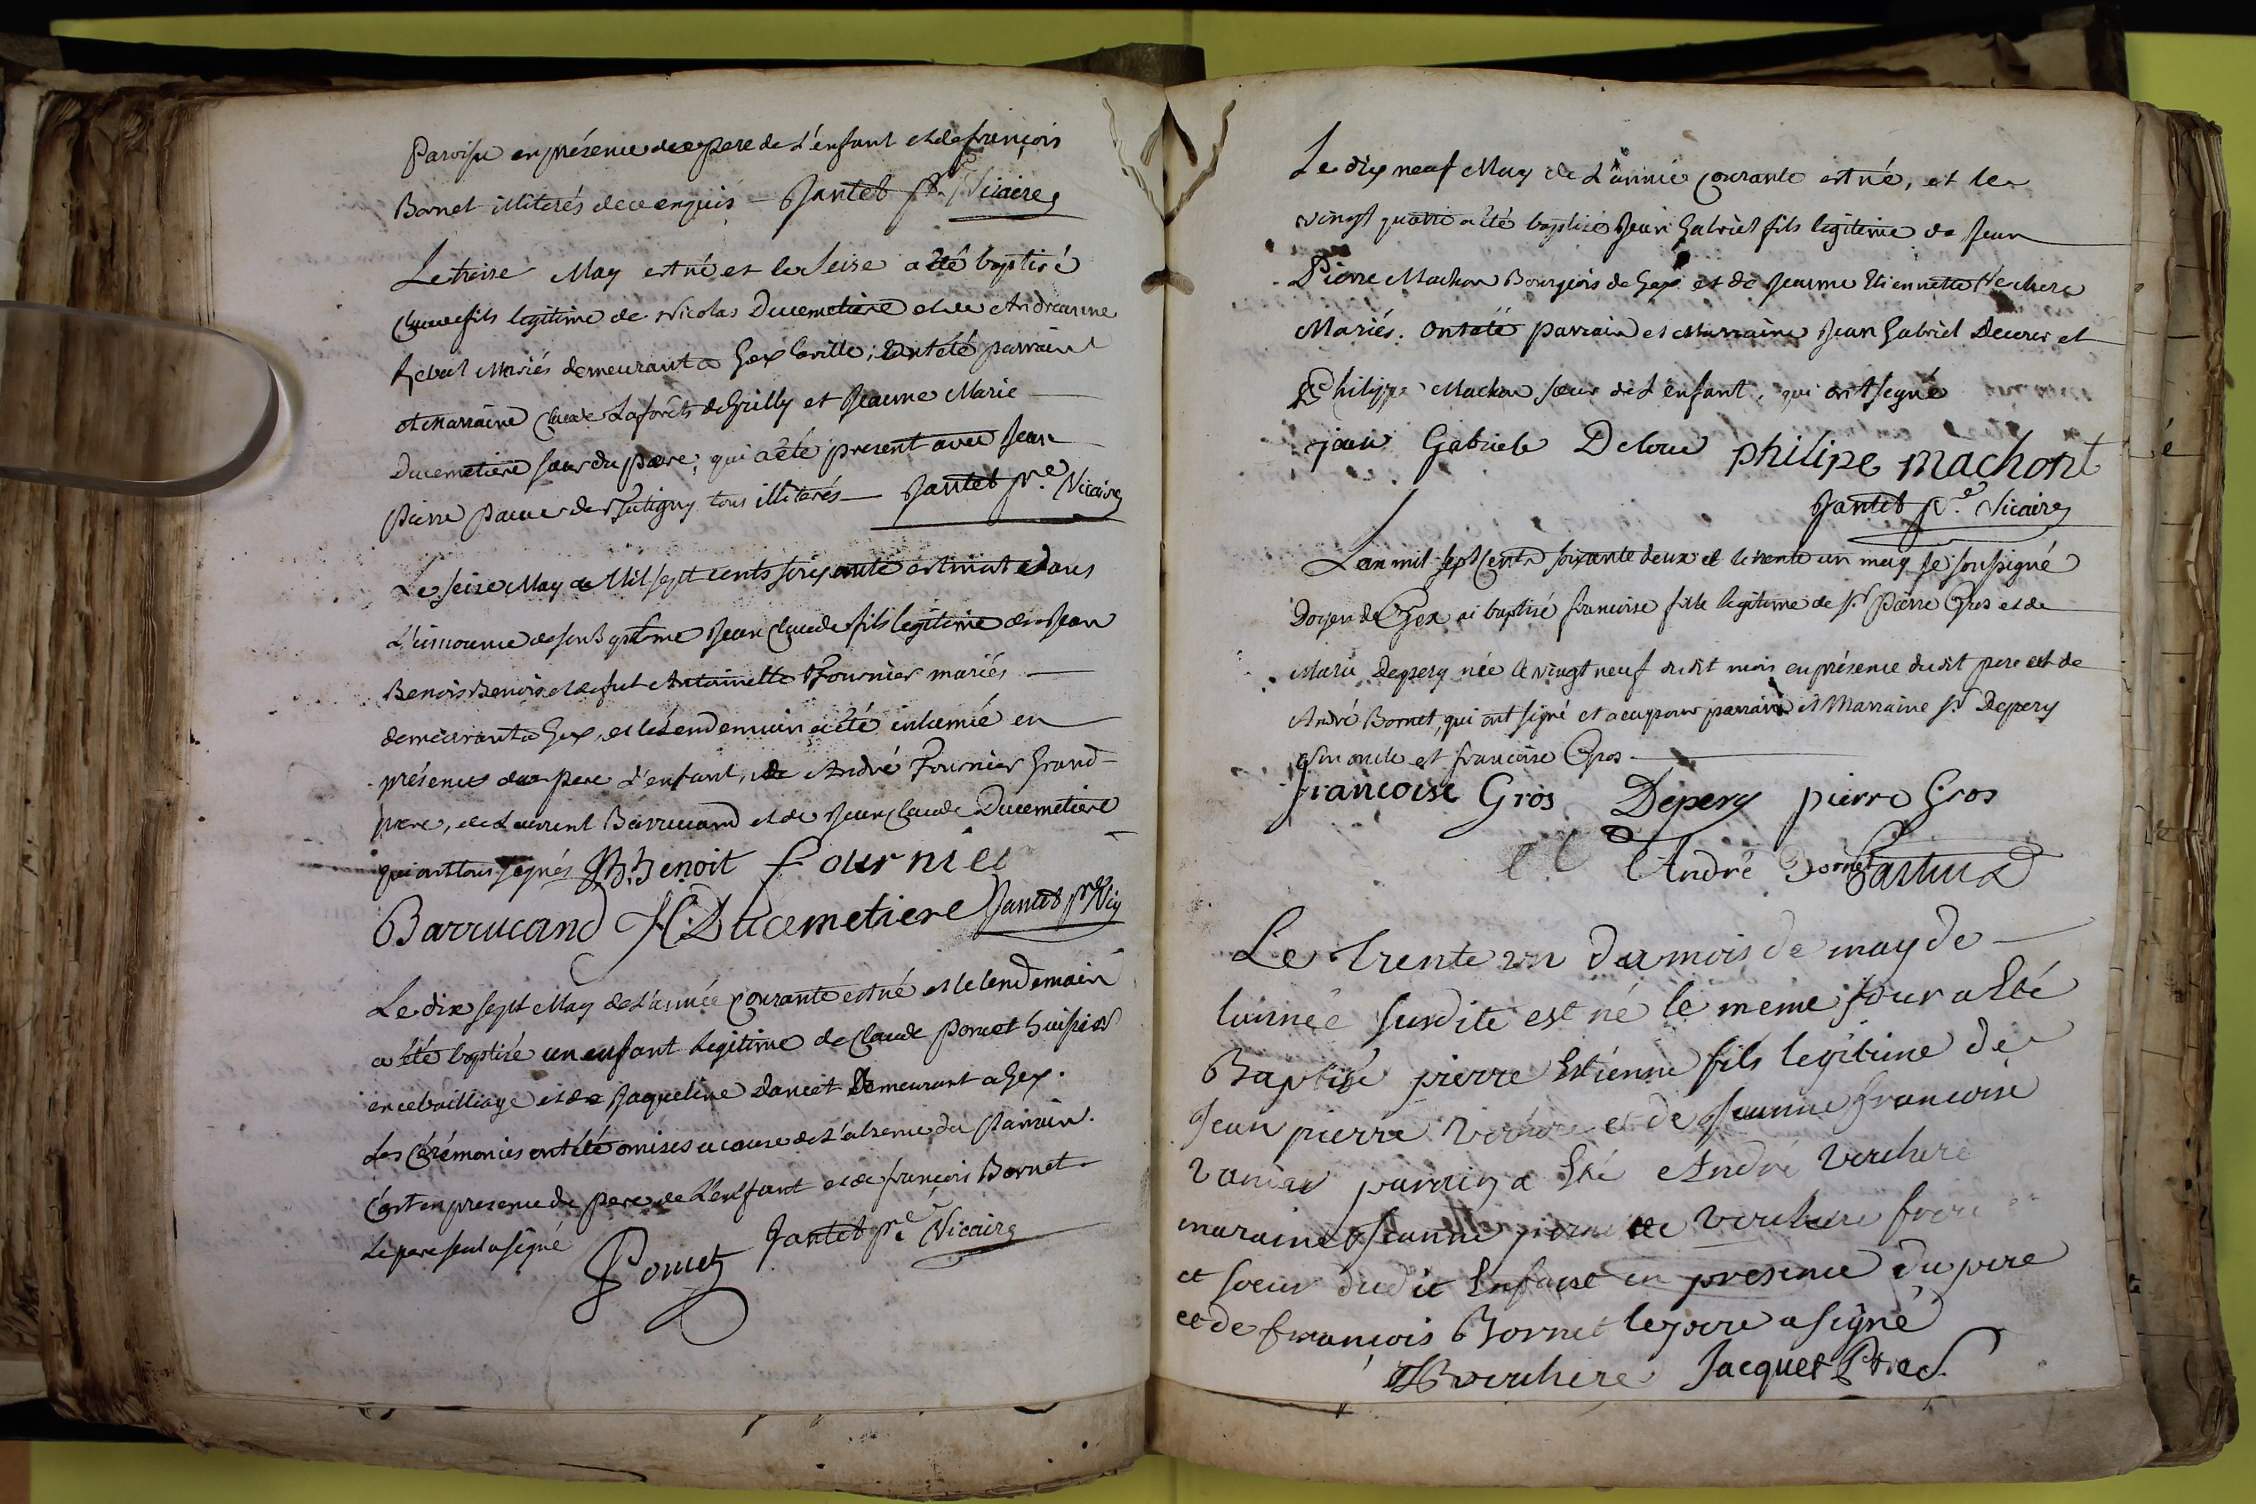 Paroisse en présence du pere de L'enfant et de françois
Bornet illiterés de ce enquis Jantet ptre Vicaire
Le treise May est né et le Seise a été baptisé
Claude fils legitime de Nicolas Ducemetiere et de Andréanne
mariés demeurant a Gex la ville; ont été parrain
et Marraine Claude Laforêts de Grilly et Jeanne Marie
Ducemetiere soeur du pere; qui a été present avec Jean
pierre de tous illiterés Jantet pre Vicaire
Le seise May de Mil sept cents soixante est mort dans
L'innocence de son Baptême Jean Claude fils legitime de Jean
Benois et de fut Antoinette Fournier mariés
demeurant a Gex, et le Lendemain a été inhumé en
présence du pere d'enfant, de André Fournier Grand
pere, de Laurent Barrucand et de Jean Claude Ducemetiere
qui ont tous signés Benoit fournier
Barrucand Ducemetiere Jantet pre Vic
Le dix sept May de L'année courante est né et le lendemain
a été baptisé un enfant legitime de Claude Poncet huissier
en ce bailliage et de Jaqueline Dancet Demeurant a Gex.
Les Cérémonies ont été omises a cause de L'absence du Parrain.
C'est en presence du pere de L'enfant et de françois Bornet
Le pere seul a signé Poncet Jantet pre Vicaire
Le dix neuf May de L'année courante est né, et le
vingt quatre a été baptisé Jean Gabriel fils legitime de Jean
Pierre Machon Bourgeois de Gex et de Jeanne Etiennette Vechere
Mariés. Ont été parrain et Marraine Jean Gabriel et
Philippe Machon soeur de L'enfant, qui ont signé
jean Gabriele Philipe machont
Jantet pre Vicaire
L'an mil sept cents soixante deux et le trente un may Je soussigné
Doyen de Gex ai baptisé francoise fille legitime de sr Pierre Gros et de
Marie Depery née le vingt neuf dudit mois en présence dudit pere et de
André Bornet, qui ont signé et a eu pour parrain et Marraine sr Depery
son oncle et francoise Gros
francoise Gros Depery pierre Gros
André Bornet
Le trente un du mois de may de
lannée susdite est né le meme jour a Eté
Baptisé pierre Estienne fils legitime de
Jean pierre et de Jeanne francoise
parrin a Eté André Verchere
maraine Jeanne Verchere frere
et soeur dudit Enfant en presence du pere
et de françois Bornet le pere a signé
Verchere Jacquet